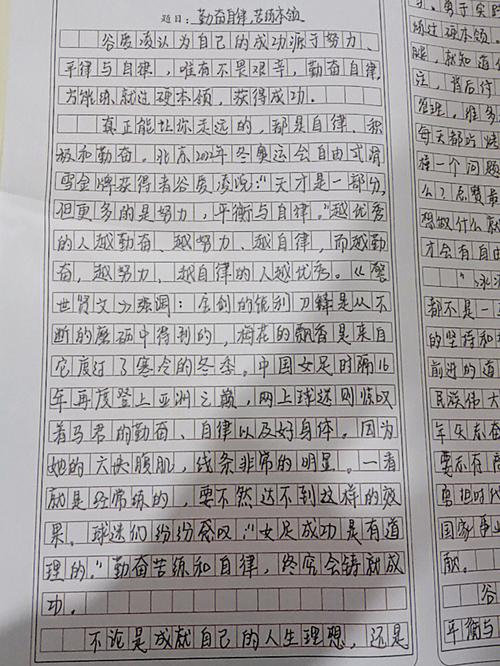 题目：勤奋自律，苦练本领
谷爱凌认为自己的成功源于努力、
平律与自律，唯有不畏艰辛，勤奋自律，
方能练就过硬本领，获得成功。
真正能让你走远的，都是自律、积
极和勤奋。北京2022年冬奥运会自由式滑
雪金牌获得者谷爱凌说："天才是一部分，
但更多的是努力，平衡与自律。"越优秀
的人越勤奋、越努力、越自律，而越勤
奋，越努力、越自律的人越优秀。《警
世贤文》强调：宝剑的锐利刀锋是从不
断的磨砺中得到的，梅花的飘香是来自
它度过了寒冷的冬季。中国女足时隔16
年再度登上亚洲之巅，网上球迷则惊叹
着马君的勤奋、自律以及好身体。因为
她的六块腹肌，线条非常的明显。一看
就是经常练的，要不然达不到这样的效
果。球迷们纷纷感叹："女足成功是有道
理的。"勤奋苦练和自律，终究会铸就成
功。
不论是成就自己的人生理想，还是
。勇于实
硬本领，
就知道
注，背后
管理。谁多
每天都吃
样一个问题
么？总觉
想做什么就
才会有自由
"冰
都不是一
的坚持和
前进的道
民族伟大
年矢志奋
要亦有
担时代
国家事业
献。
谷
平衡与